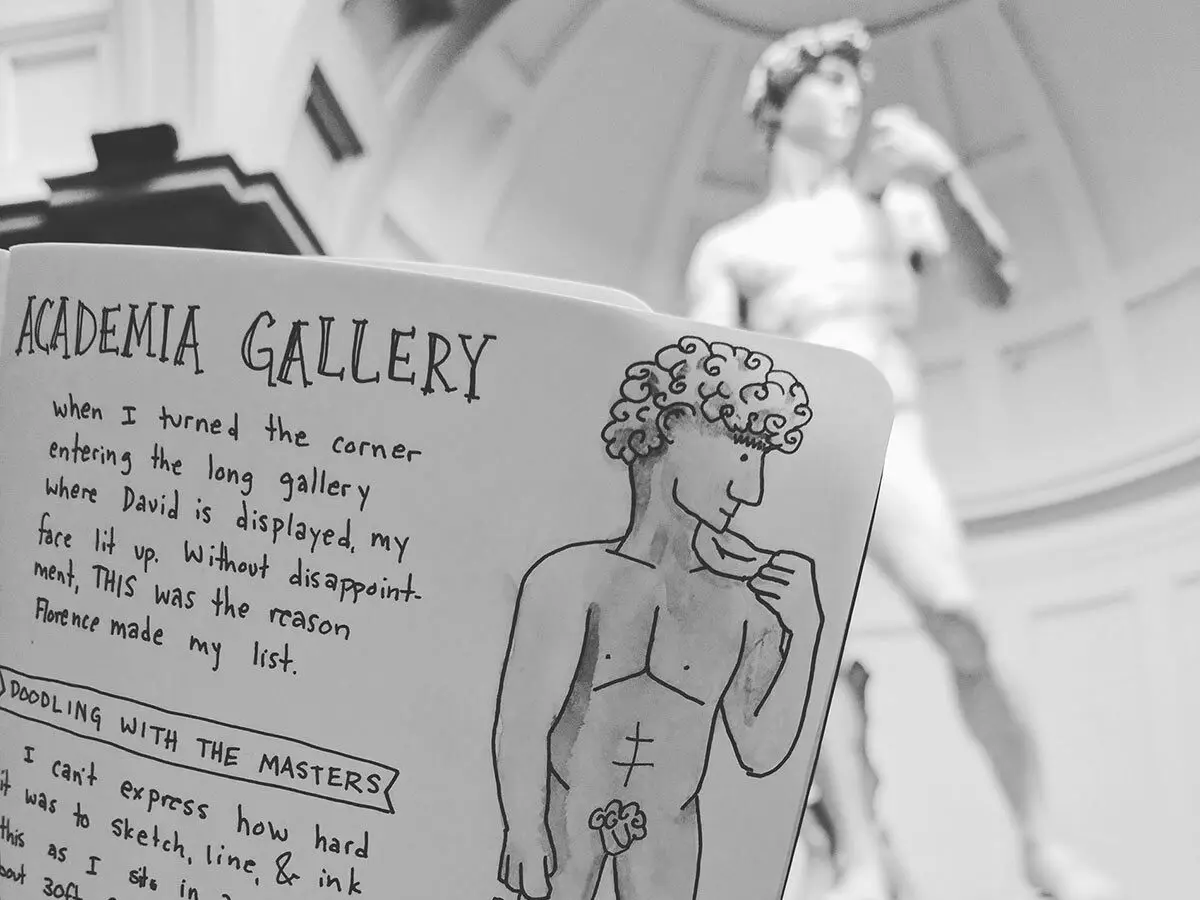 ACADEMIA GALLERY
when I turned the corner
entering the long gallery
where David is displayed, my
face lit up. Without disappoint-
ment, THIS was the reason
Florence made my list.
DOODLING WITH THE MASTERS
I can't express how hard
it was to sketch, line, & ink
this as I sits in
30ft